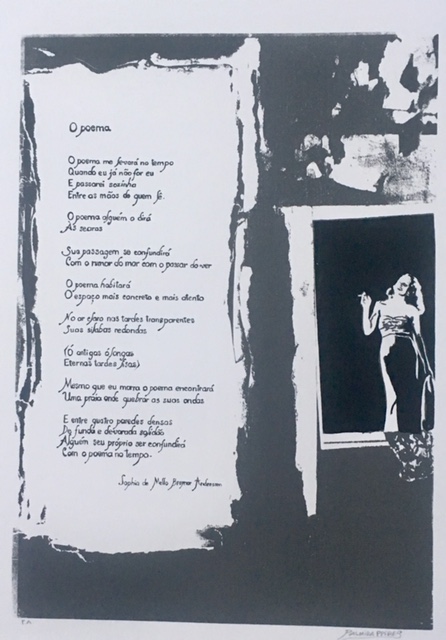 O poema
O poema me levará no tempo
Quando eu já não for eu
E passarei sozinha
Entre as mãos de quem lê.
O poema alguém o dirá
Às searas
Sua passagem se confundirá
Com o rumor do mar com o passar do ver
O poema habitará
O espaço mais concreto e mais atento
No ar claro nas tardes transparentes
Suas sílabas redondas
(Ó antigas ó longas
Eternas tardes lisas)
Mesmo que eu morra o poema encontrará
Uma praia onde quebrar as suas ondas
E entre quatro paredes densas
De funda e devorada solidão
Alguém seu próprio ser confundirá
Com o poema no tempo.
Sophia de Mello Breyner Andresen